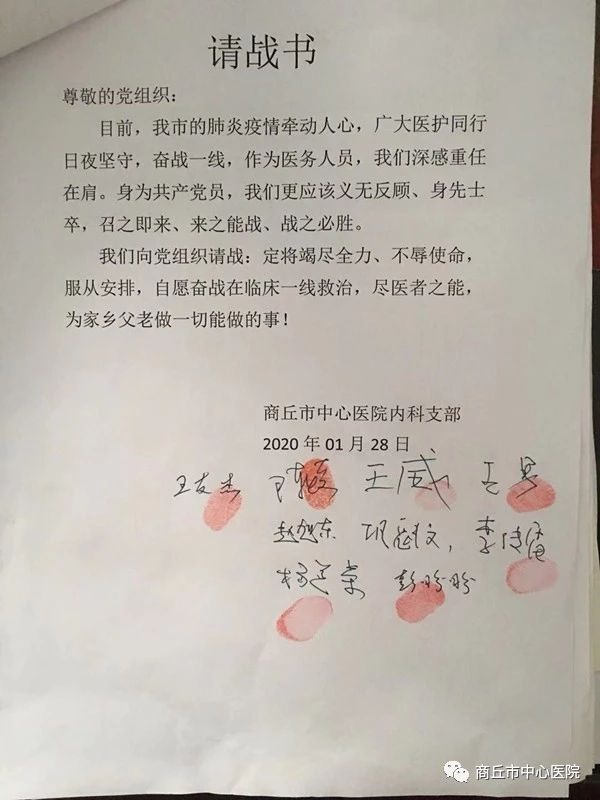 请战书
尊敬的党组织：
目前，我市的肺炎疫情牵动人心，广大医护同行
日夜坚守，奋战一线，作为医务人员，我们深感重任
在肩。身为共产党员，我们更应该义无反顾、身先士
卒，召之即来、来之能战、战之必胜。
我们向党组织请战：定将竭尽全力、不辱使命，
服从安排，自愿奋战在临床一线救治，尽医者之能，
为家乡父老做一切能做的事！
商丘市中心医院内科支部
2020 年 01 月 28 日
王友杰 王威
赵旭东
彭盼盼
商丘市中心医院